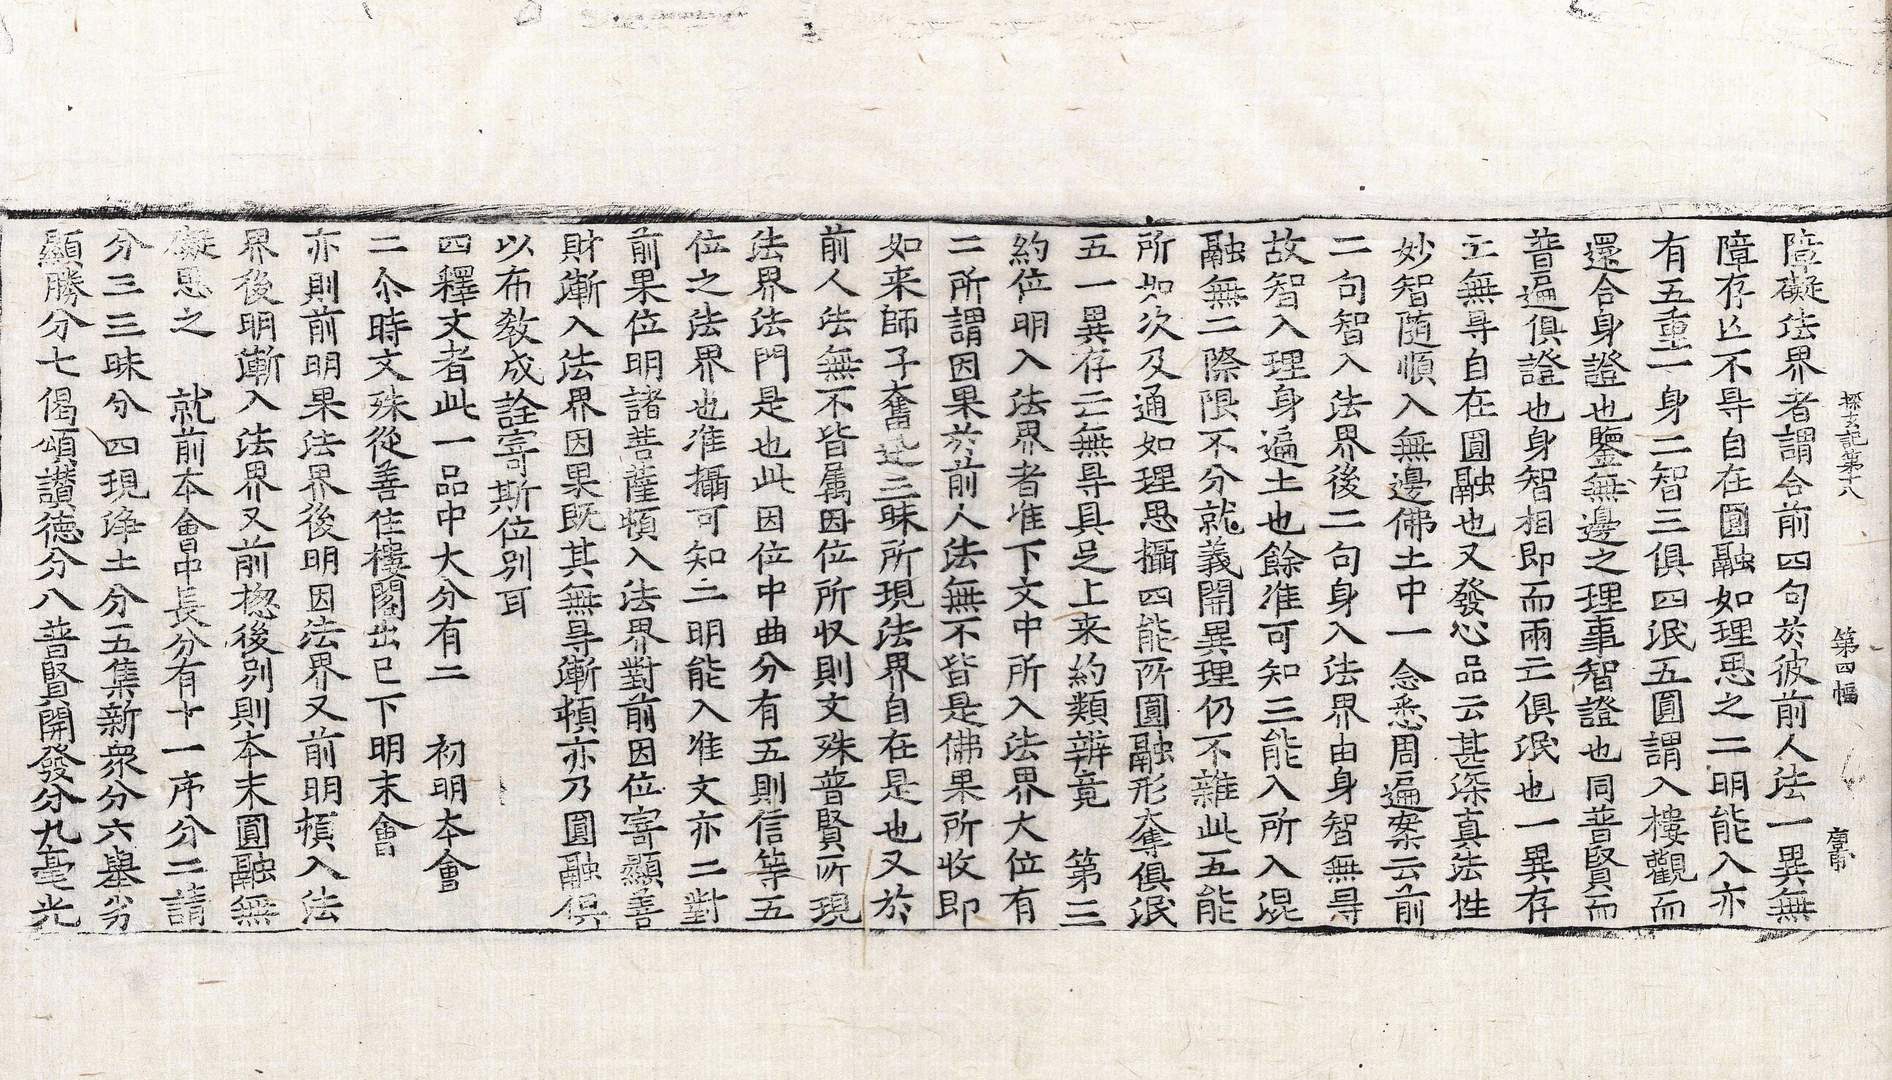 探玄記第十八　第四幅
障礙法界者謂合前四句於彼前人法一異無
障存亡不㝵自在圓融如理思之二明能入亦
有五重一身二智三俱四泯五圓謂入樓觀而
還合身證也鑒無邊之理事智證也同普賢而
普遍俱證也身智相即而兩亡俱泯也一異存
亡無㝵自在圓融也又發心品云甚深真法性
妙智隨順入無邊佛土中一念悉周遍案云前
二句智入法界後二句身入法界由身智無㝵
故智入理身遍土也餘准可知三能入所入混
融無二際限不分就義開異理仍不雜此五能
所如次及通如理思攝四能所圓融形奪俱泯
五一異存亡無㝵具足上来約類辨竟　第三
約位明入法界者准下文中所入法界大位有
二所謂因果於前人法無不皆是佛果所收即
如来師子奮迅三昧所現法界自在是也又於
前人法無不皆属因位所収則文殊普賢所現
法界法門是也此因位中曲分有五則信等五
位之法界也准攝可知二明能入准文亦二對
前果位明諸菩薩頓入法界對前因位寄顯善
財漸入法界因果既其無㝵漸頓亦乃圓融俱
以布教成詮寄斯位別耳
四釋文者此一品中大分有二　初明本會
二尒時文殊從善住樓閣出已下明末會
亦則前明果法界後明因法界又前明頓入法
界後明漸入法界又前揔後別則本末圓融無
礙思之　就前本會中長分有十一序分二請
分三三昧分四現淨土分五集新衆分六舉劣
顯勝分七偈頌讃德分八普賢開發分九毫光